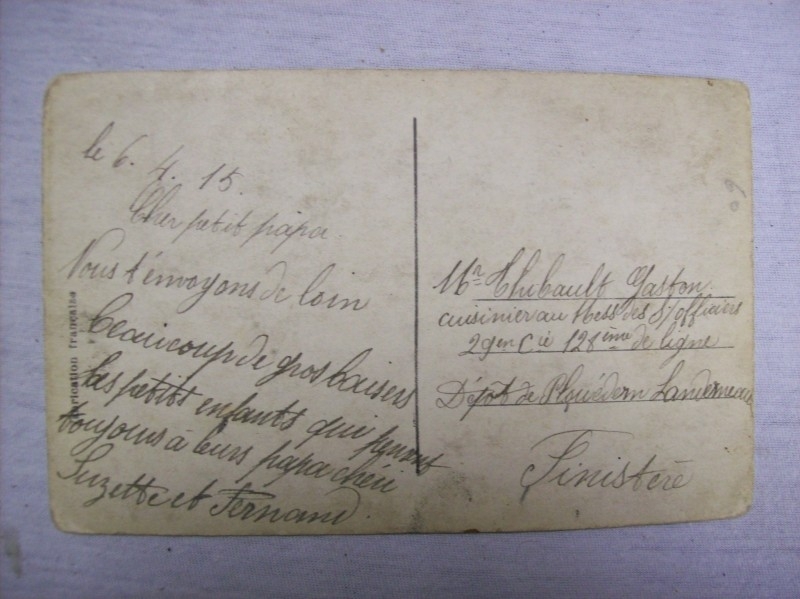 le 6. 4. 15.
Cher petit papa
Nous t'envoyons de loin
beaucoup de gros baisers
tes petits enfants qui
toujours à leurs papa chéri
Suzette et Fernand.
fabrication française
Mr Thibault Gaston
cuisinier au Mess des S/officiers
128ème de ligne
Dépôt de Plouédern Landerneau
Finistère